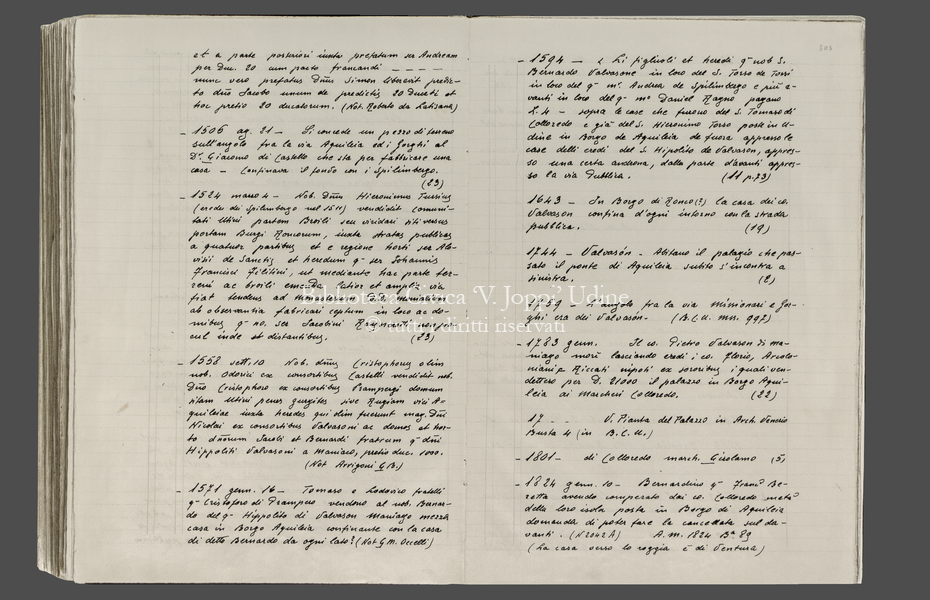 et a parte posteriori iuxta prefatum ser Andream
per Duc. 20 cum pacto francandi — — — —
nunc vero prefatus Dnus Simon liberavit predic-
to dno Jacobo unum de predictis 20 Ducatis et
hoc pretio 20 ducatorum. (Not. Roberto da Latisana)
- 1506 ag. 21 — Si concede un pezzo di terreno
sull'angolo fra la via Aquileia ed i Gorghi al
Dr. Giacomo di Castello che sta per fabbricare una
casa — Confinava il fondo con i Spilimbergo.
(23)
- 1524 marzo 4 — Nob. Dnus Hieronimus Tursius
(erede di Spilimbergo nel 1511) vendidit Comuni-
tati Utini partem Broili seu viridari siti versus
portam Burgi Roncorum, iuxta stratas publicas
a quatuor partibus et e regione horti ser Alo-
visii de Sanctis et heredum q. ser Johannis
Francisci Filitini, ut mediante hac parte ter-
reni ac broili emenda latior et amplia via
fiat tendens ad
ab observantia fabricari ceptum in loco ac do-
mibus q. no. ser Jacobini
cul inde et distantibus. (23)
- 1558 sett. 10 Nob. dnus Cristophorus olim
nob. Odorici ex consortibus Castelli vendidit nob.
Dno Cristophoro ex consortibus Prampergi domum
sitam Utini penes gurgites sive Rugiam vici A-
quileiae iuxta heredes qui olim fuerunt mag. Dni
Nicolai ex consortibus Valvasoni ac domos et hor-
to dnorum Jacobi et Bernardi fratrum q. dni
Hippoliti Valvasoni a Maniaco, pretio duc. 1000.
(Not Arrigoni G.B.)
- 1571 genn. 16 — Tomaso e Lodovico fratelli
q. Cristoforo di Prampero vendono al nob. Bernar-
do del q. Hippolito di Valvason Maniago mezza
casa in Borgo Aquileia confinante con la casa
di detto Bernardo da ogni lato! (Not G.M. Occelli)
303
- 1594 — Li figliuoli et heredi q. nob. S.
Bernardo Valvasone in loco del S. Torso de Torsi
in loco del q. mr. Andrea de Spilimbergo e più a-
vanti in loco del q. mo Daniel Ragno pagano
L. 4 — sopra le case che furono del S. Tomaso di
Colloredo e già del S. Hieronimo Torso poste in U-
dine in Borgo de Aquileia de fuora appresso le
case delli eredi del S. Hipolito de Valvason, appres-
so una certa androna, dalla parte davanti appres-
so la via Pubblica. (11 p. 73)
- 1643 — In Borgo di Ronco(?) la casa dei co.
Valvason confina d'ogni intorno con la strada
pubblica. (19)
- 1744 — Valvasón — Abitano il palagio che pas-
sato il ponte di Aquileia subito s'incontra a
sinistra. (2)
L'angolo fra la via Missionari e Gor-
ghi era dei Valvasón — (B.C.U. mn. 997)
- 1783 genn. Il co. Pietro Valvason di Ma-
niago morì lasciando eredi i co. Florio, Arcolo-
niani e Riccati nipoti ex sororibus i quali ven-
dettero per D. 21000 il palazzo in Borgo Aqui-
leia ai Marchesi Colloredo. (22)
- 17 . . V. Pianta del Palazzo in Arch. Venerio
Busta 4 (in B.C.U.)
- 1801 — di Colloredo march. Girolamo (5)
- 1824 genn. 10 — Bernardino q. Franco Be-
retta avendo comperato dai co. Colloredo metà
della loro isola posta in Borgo di Aquileia
domanda di poter fare la cancellata sul da-
vanti. (N 2042 A) A.M. 1824 Ba 89
(La casa verso la roggia è di Ventura)
Biblioteca Civica 'V. Joppi' Udine
© tutti i diritti riservati